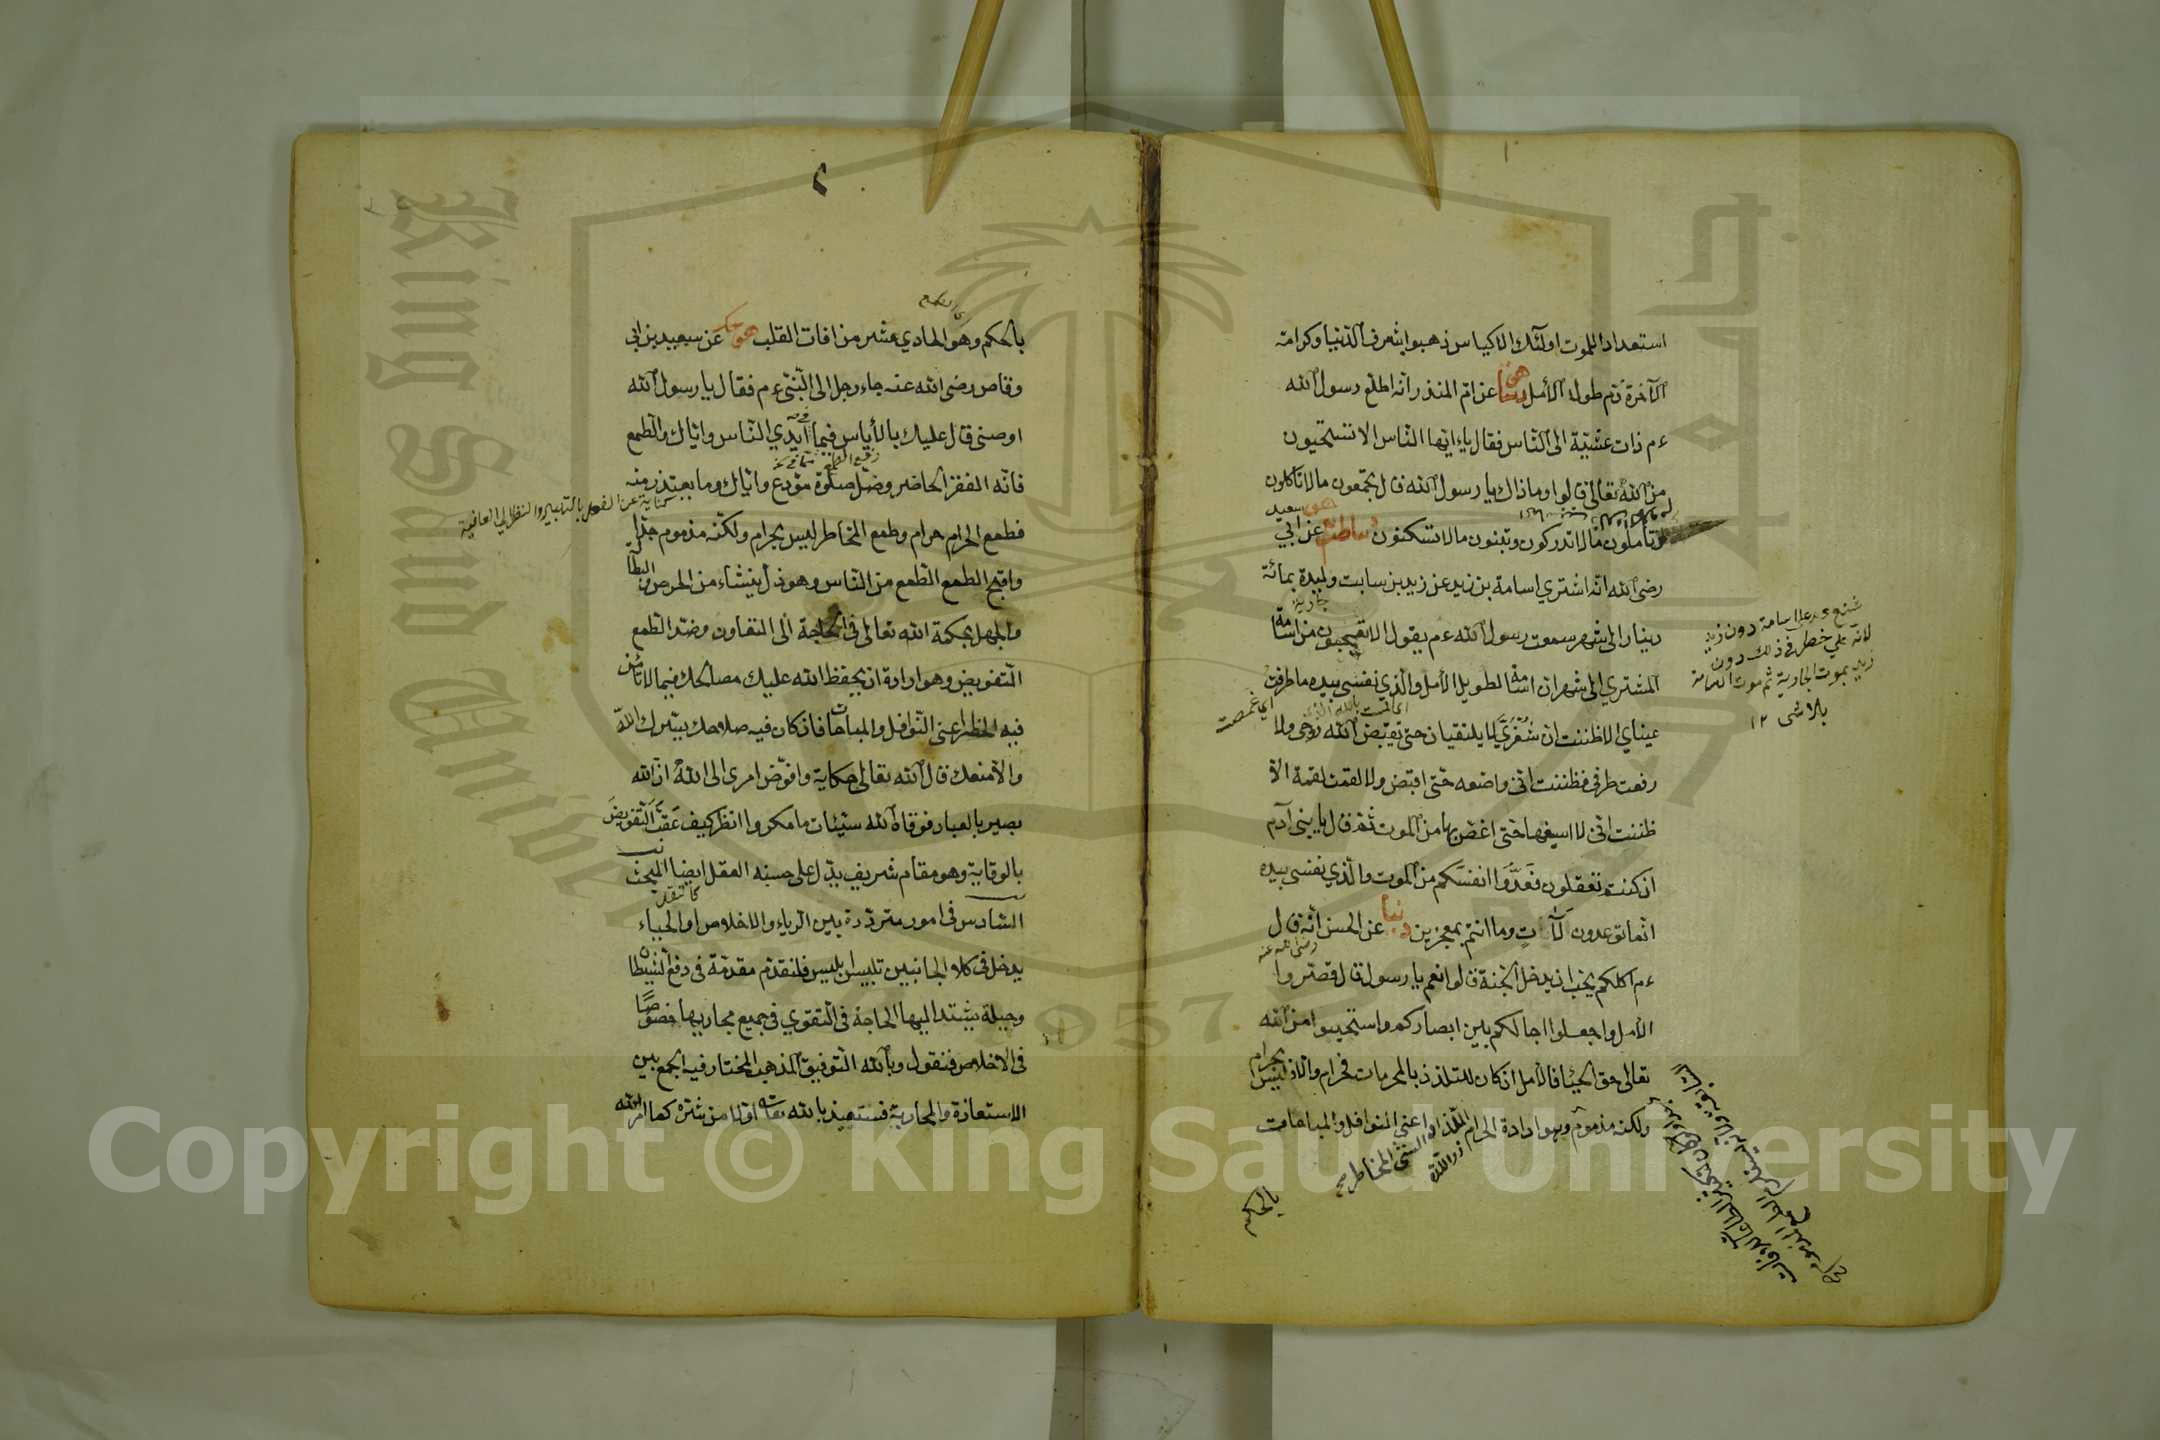 استعدادا للموت اولئك الاكياس ذهبوا بشرف الدنيا وكرامة
الآخرة ثم طول الأمل عن ام المنذر انه اطلع رسول الله
ءم ذات عشية الى الناس فقال ياءايها الناس الا تستحيون
من الله تعالى قالوا وما ذاك يا رسول الله قال تجمعون مالا تاكلون
وتأملون مالا تدركون وتبنون مالا تسكنون عن ابي سعيد
رضى الله انه اشتري اسامة بن زيد عن زيد بن سابت وليدة بمائة
دينار الى شهر سمعت رسول الله ءم يقول الا تعجبون من اسامة
المشتري الى شهر ان اسامة لطويل الأمل والذي نفسى بيده ما طرفت
عيناي الا ظننت ان شفري لا يلتقيان حتى يقبض الله روحى ولا
رفعت طرفى فظننت انى واضعه حتى اقبض ولا لقمت لقمة الا
ظننت انى لا اسيغها حتى اغص بها من الموت ثم قال يا بنى آدم
ان كنتم تعقلون فعدوا انفسكم من الموت والذي نفسى بيده
انما توعدون لآت وما انتم بمعجزين دنيا عن الحسن انه قال
رضى الله عنه
ءم اكلكم يحب ان يدخل الجنة قالوا نعم يا رسول قال قصروا
الأمل واجعلوا اجالكم بين ابصاركم واستحيوا من الله
تعالى حق الحياء فالأمل ان كان للتلذذ بالمحرمات فحرام والا فليس بحرام
ولكنه مذموم وهو ارادة الحرام الملذ او اعنى النوافل والمباحات
والشئ المخاطر صح
بالحكم
على اسامة دون زيد
لانه على خطر فى ذلك دون
زيد بموت الجارية ثم موت
بلا شى ١٢
بالحكم وهو الحادي عشر من افات القلب عن سعيد بن ابى
وقاص رضى الله عنه جاء رجل الى النبى ءم فقال يا رسول الله
اوصنى قال عليك بالأياس فيما فى أيدي الناس واياك والطمع
فانه الفقر الحاضر وصل صلوة مودع واياك وما يعتذر منه
كناية عن الفعل بالتدبير والنظر الى العاقبة
فطمع الحرام حرام وطمع المخاطر ليس بحرام ولكنه مذموم جدا
واقبح الطمع الطمع من الناس وهو ذل ينشاء من الحرص والبطالة
والجهل بحكمة الله تعالى فى الحاجة الى التعاون وضد الطمع
التفويض وهو ارادة ان يحفظ الله عليك مصالحك فيما لا تأمن
فيه الخطر اعنى النوافل والمباحات فان كان فيه صلاحك يسرك الله
والا منعك قال الله تعالى حكاية وافوض امرى الى الله ان الله
بصير بالعباد فوقاه الله سيئات ما مكروا انظر كيف عقب التفويض
بالوقاية وهو مقام شريف يدل على حسنه العقل ايضا المبحث
السادس فى امور مترددة بين الرياء والاخلاص او الحياء
يدخل فى كلا الجانبين تلبيس ابليس فلنقدم مقدمة فى دفع الشيطان
وحيلة يشتد اليها الحاجة فى التقوي فى جميع مجاريها خصوصا
فى الاخلاص فنقول وبالله التوفيق المذهب المختار فيه الجمع بين
الاستعاذة والمحاربة فنستعيذ بالله تعالى اولا من شره كما امر الله
Copyright © King Saud University
King Saud University
1957